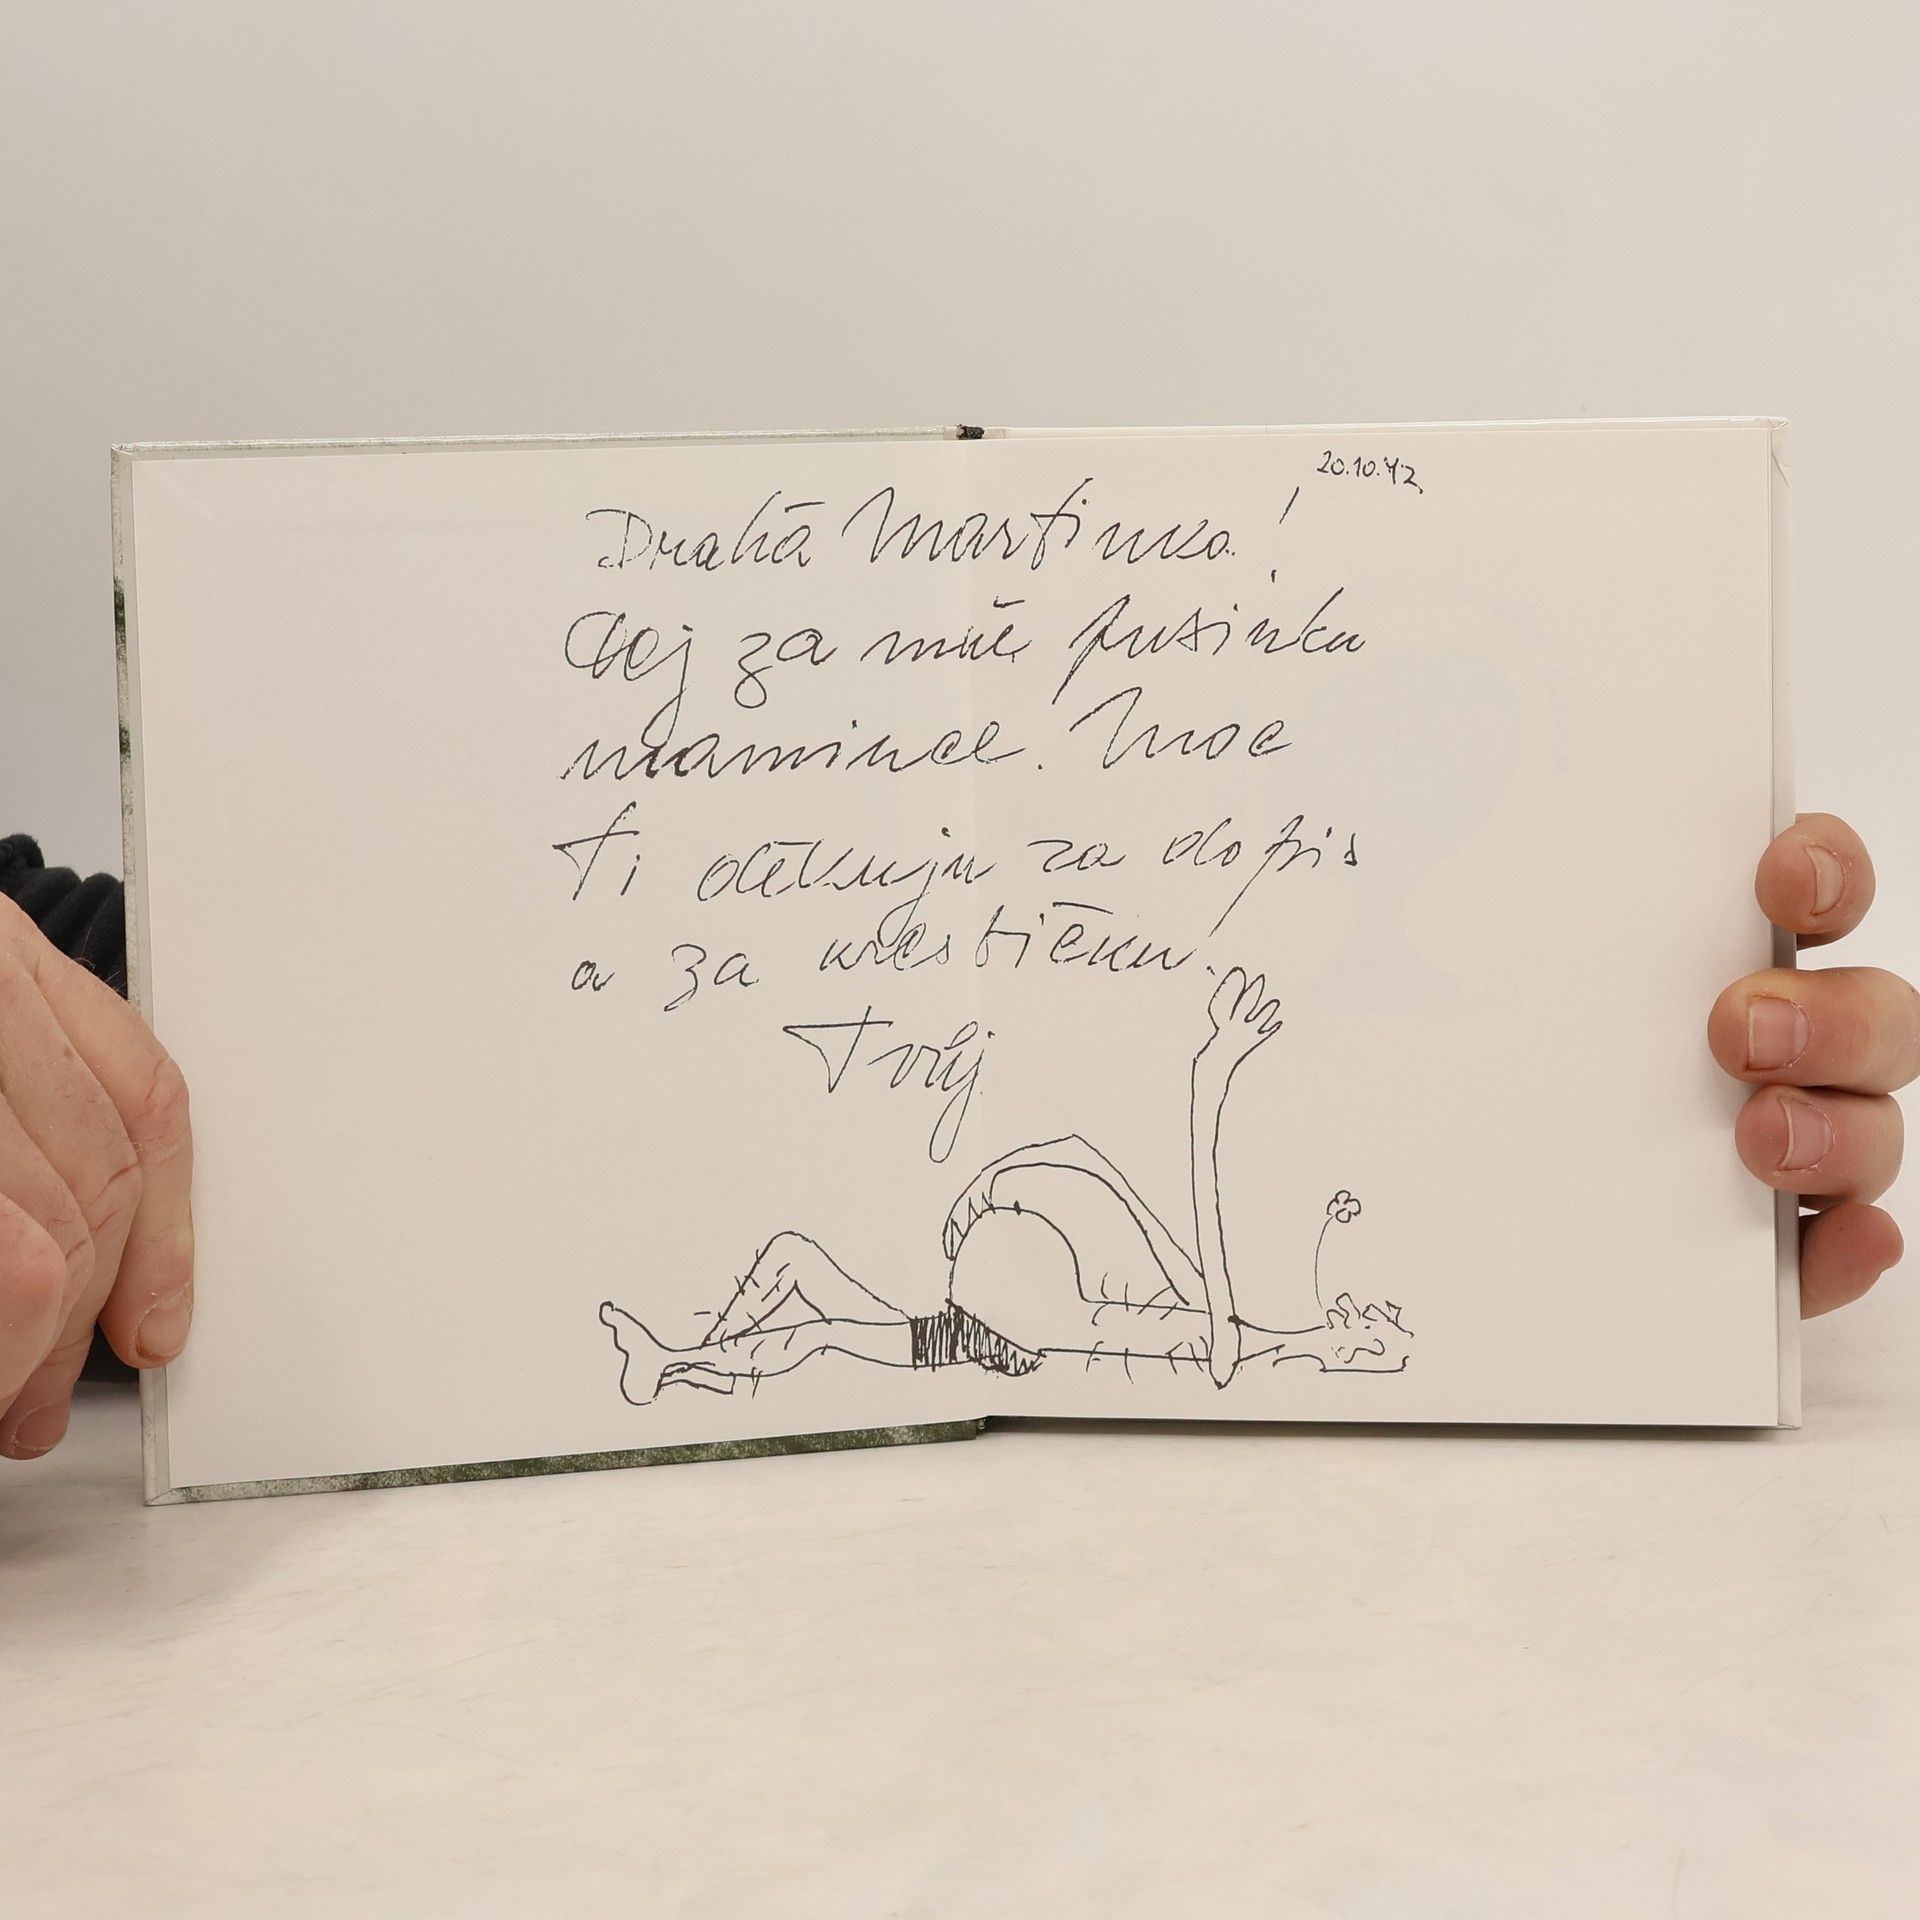 20.10.42
Drahá Martinko!
Dej za mě pusinku
mamince. Moc
Ti děkuju za dopis
a za kresbičku.
Tvůj